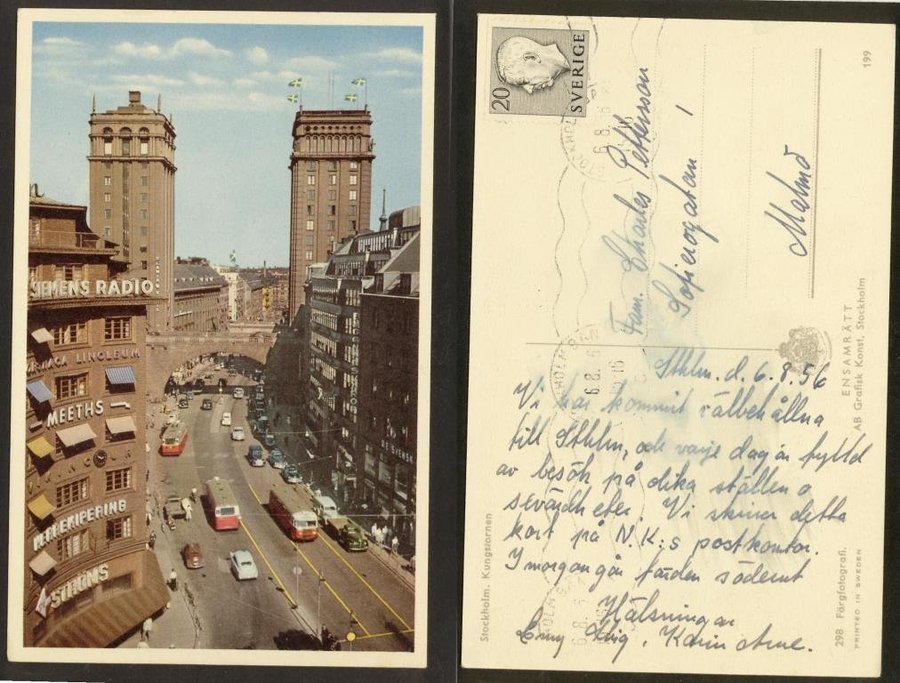 SIEMENS RADIO
LINOLEUM
MEETHS
HERREKIPERING
STRÖMS
20
SVERIGE
6.8.
Fam. Charles Pettersson
Sofierogatan 1
Malmö
199
ENSAMRÄTT
AB Grafisk Konst, Stockholm
Sthlm. d. 6.8.56
Vi har kommit välbehållna
till Sthlm, och varje dag är fylld
av besök på olika ställen o
sevärdheter. Vi skriver detta
kort på N.K:s postkontor.
I morgon går färden söderut
Hälsningar
Stig, Karin Arne.
Stockholm. Kungstornen
298 Färgfotografi.
PRINTED IN SWEDEN